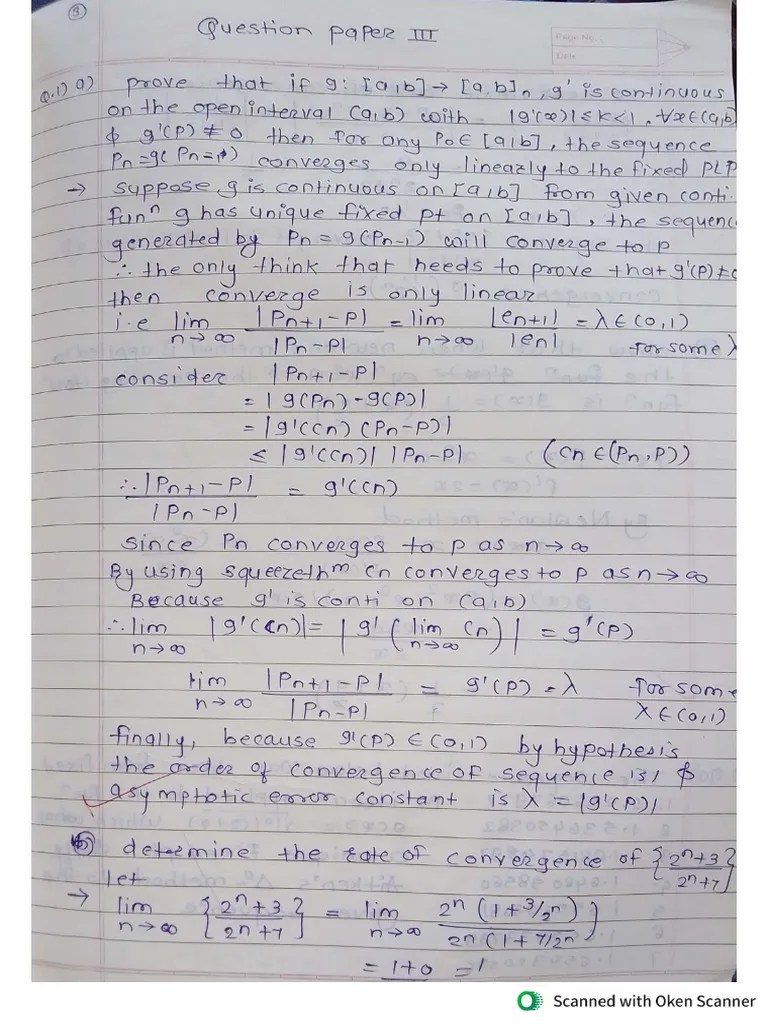 ③
Question paper III
Page No.
Date
Q.1) a) prove that if g: [a,b] → [a,b], g' is continuous
on the open interval (a,b) with |g'(x)| ≤ k < 1, ∀x∈(a,b)
& g'(p) ≠ 0 then for any P0 ∈ [a,b], the sequence
Pn = g(Pn-1) converges only linearly to the fixed pt P
→ suppose g is continuous on [a,b] from given conti.
funⁿ g has unique fixed pt on [a,b], the sequenc
generated by Pn = g(Pn-1) will converge to p
∴ the only think that needs to prove that g'(p) ≠ 0
then converge is only linear
i.e lim n→∞ |Pn+1 - P| / |Pn - P| = lim n→∞ |en+1| / |en| = λ ∈ (0,1) for some λ
consider |Pn+1 - P|
= |g(Pn) - g(P)|
= |g'(cn) (Pn - P)|
≤ |g'(cn)| |Pn - P| (cn ∈ (Pn, P))
∴ |Pn+1 - P| / |Pn - P| = g'(cn)
since Pn converges to p as n→∞
By using squeeze thᵐ cn converges to p as n→∞
Because g' is conti on (a,b)
∴ lim n→∞ |g'(cn)| = |g'(lim n→∞ cn)| = g'(p)
lim n→∞ |Pn+1 - P| / |Pn - P| = g'(p) = λ for some λ ∈ (0,1)
finally, because g'(p) ∈ (0,1) by hypothesis
the order of convergence of sequence is 1 &
asymptotic error constant is λ = |g'(p)|
b) determine the rate of convergence of {2ⁿ+3 / 2ⁿ+7}
→ let
lim n→∞ {2ⁿ+3 / 2ⁿ+7} = lim n→∞ 2ⁿ(1+3/2ⁿ) / 2ⁿ(1+7/2ⁿ)
= 1+0 = 1
Scanned with Oken Scanner